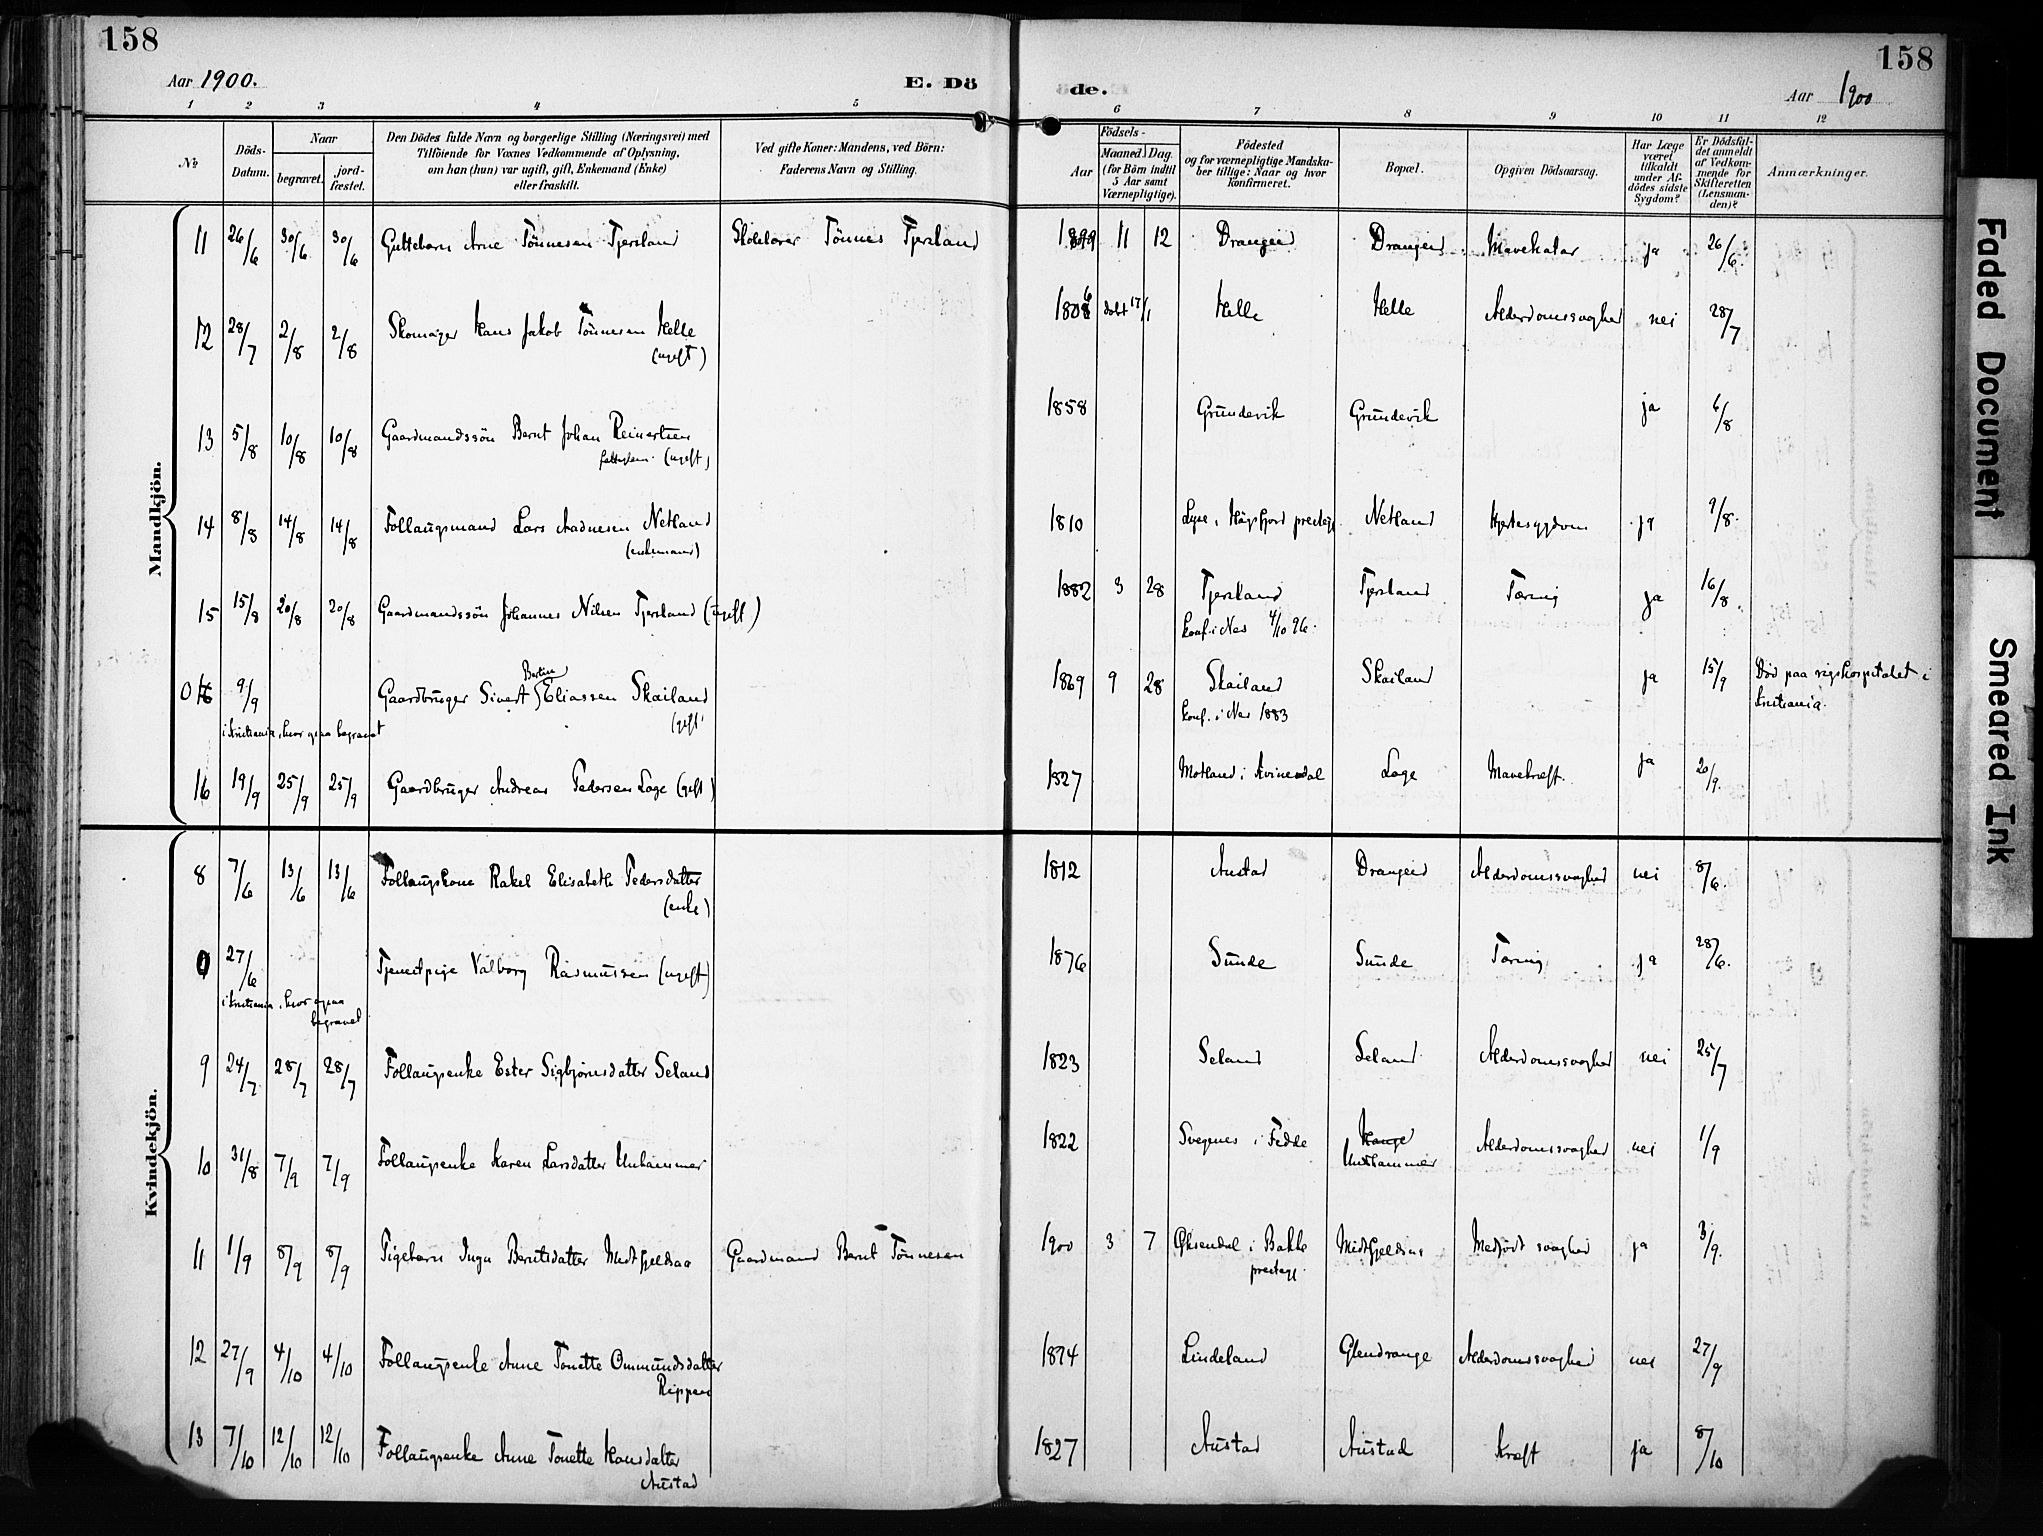 158
158
Aar 1900.
E. Dö
de.
Aar 1900
1 2 3 4 5 6 7 8 9 10 11 12
No
Döds-Datum.
Naar
begravet.
jord-fæstet.
Den Dödes fulde Navn og borgerlige Stilling (Næringsvei) med
Tilföiende for Voxnes Vedkommende af Oplysning,
om han (hun) var ugift, gift, Enkemand (Enke)
eller fraskilt.
Ved gifte Koner: Mandens, ved Börn:
Faderens Navn og Stilling.
Födsels-
Aar
Maaned. Dag.
(for Börn indtil
5 Aar samt
Værnepligtige).
Födested
og for værnepligtige Mandska-
ber tillige: Naar og hvor
konfirmeret.
Bopæl.
Opgiven Dödsaarsag.
Har Læge
været
tilkaldt
under Af-
dödes sidste
Sygdom?
Er Dödsfal-
det anmeldt
af Vedkom-
mende for
Skifteretten
(Lensman-
den)?
Anmærkninger.
Mandkjön.
11 26/6 30/6 30/6 Guttebarn Arne Tönnesen Tjersland Tönnes Tjersland 1899 11 12 Drangeid Drangeid Mavekatar ja 26/6.
12 28/7 2/8 2/8 Skomager Hans Jakob Tönnesen Helle 17/1 Helle Helle Alderdomssvaghed nei 28/7
(ugift)
13 5/8 10/8 10/8 Gaardmandssön Bernt Johan Reinertsen 1858 Grundevik Grundevik ja 6/8
(ugift)
14 8/8 14/8 14/8 Follaugsmand Lars Aadnesen Netland 1810 Lyse i Högsfjord prestegj. Netland Hjertesygdom ja 9/8.
(enkemand)
15 15/8 20/8 20/8 Gaardmandssön Johannes Nilsen Tjersland (ugift) 1882 3 28 Tjersland Tjersland Tæring ja 16/8
konf. i Nes 4/10 96.
Bertin
0 16 9/9 Gaardbruger Sivert Eliassen Skailand 1869 9 28 Skailand Skailand ja 15/9 Död paa rigshospitalet i
i Kristiania, hvor ogsaa begravet (gift) konf. i Nes 1883 Kristiania.
16 19/9 25/9 25/9 Gaardbruger Andreas Pedersen Loge (gift) 1827 Motland i Kvinesdal Loge Mavekræft. ja 20/9.
Kvindekjön.
8 7/6 13/6 13/6 Follaugskone Rakel Elisabeth Pedersdatter 1812 Austad Drangeid Alderdomssvaghed nei 8/6.
(enke)
0 27/6 Tjenestpige Valborg Rasmussen (ugift) 1876 Sunde Sunde Tæring ja 28/6.
i Kristiania, hvor ogsaa
begravet
9 24/7 28/7 28/7 Follaugsenke Ester Sigbjörnsdatter Seland 1823 Seland Seland Alderdomssvaghed nei 25/7
10 31/8 7/9 7/9 Follaugsenke Karen Larsdatter Unhammer 1822 Svegenes i Fedde Unhammer Alderdomssvaghed nei 1/9
11 1/9 8/9 8/9 Pigebarn Inga Berntsdatter Midtfjeldsaa Gaardmand Bernt Tönnesen 1900 3 7 Öksendal i Bakke Midtfjeldsaa Medfödt svaghed ja 3/9.
prestegj.
12 27/9 4/10 4/10 Follaugsenke Anne Tonette Ommundsdatter 1814 Lindeland Glendrange Alderdomssvaghed nei 27/9
13 7/10 12/10 12/10 Follaugsenke Anne Tonette Hansdatter 1827 Austad Austad Kræft ja 8/10
Austad
Faded Document
Smeared Ink